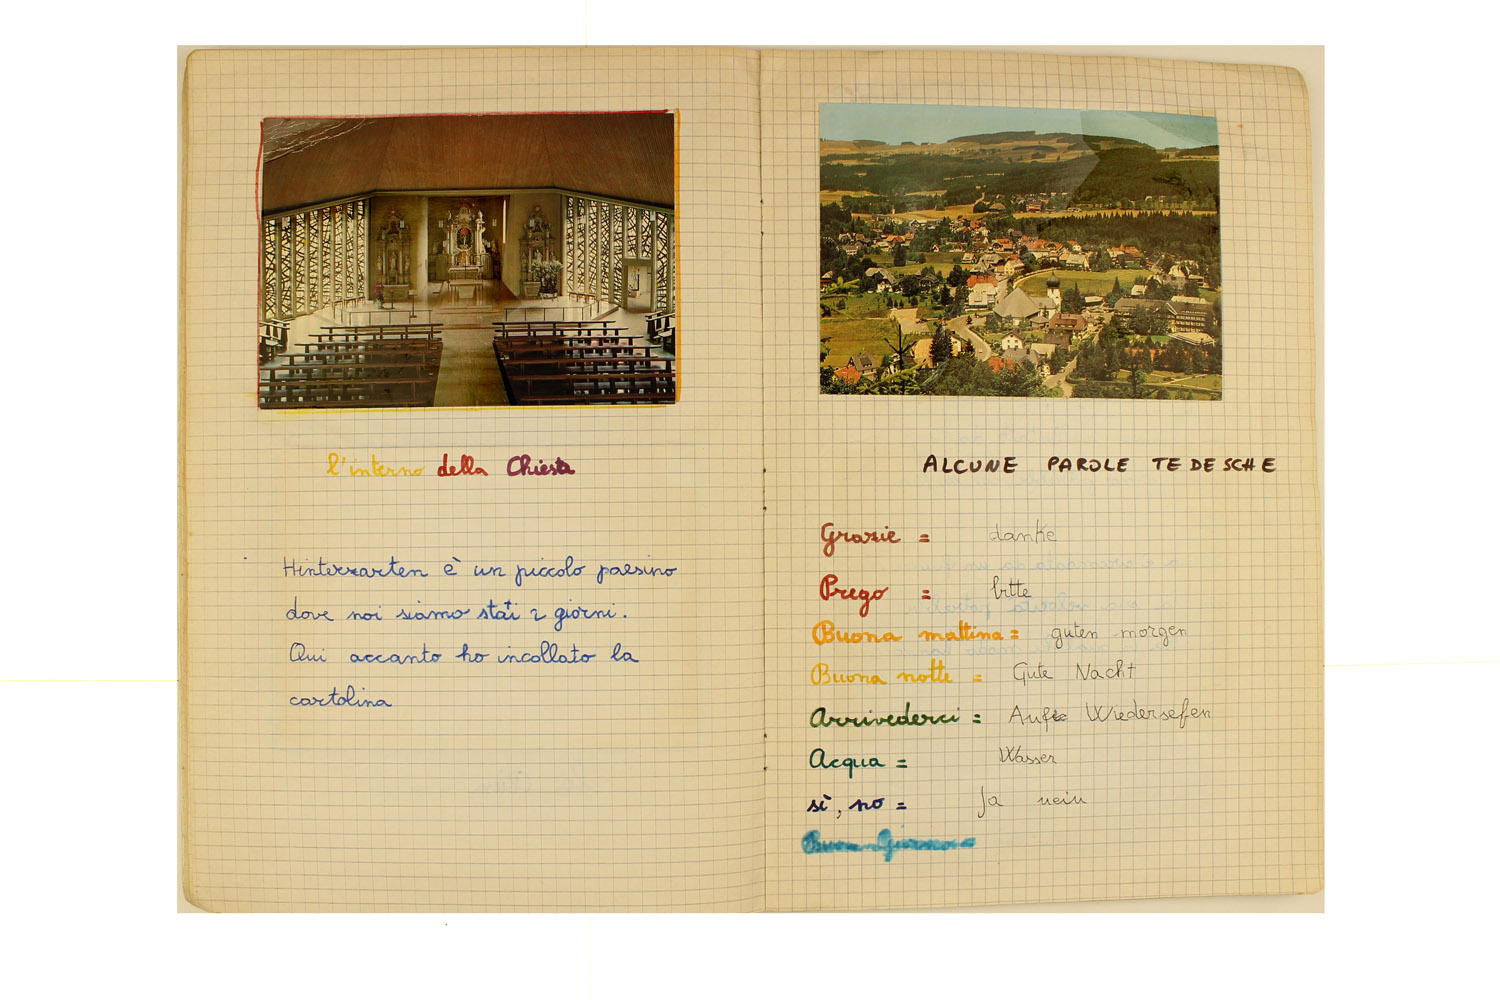 l'interno della Chiesa
Hinterzarten è un piccolo paesino
dove noi siamo stati 2 giorni.
Qui accanto ho incollato la
cartolina
ALCUNE PAROLE TEDESCHE
Grazie = danke
Prego = bitte
Buona mattina = guten morgen
Buona notte = Gute Nacht
Arrivederci = Auf Wiedersefen
Acqua = Wasser
sì, no = Ja nein
Buon Giorno =